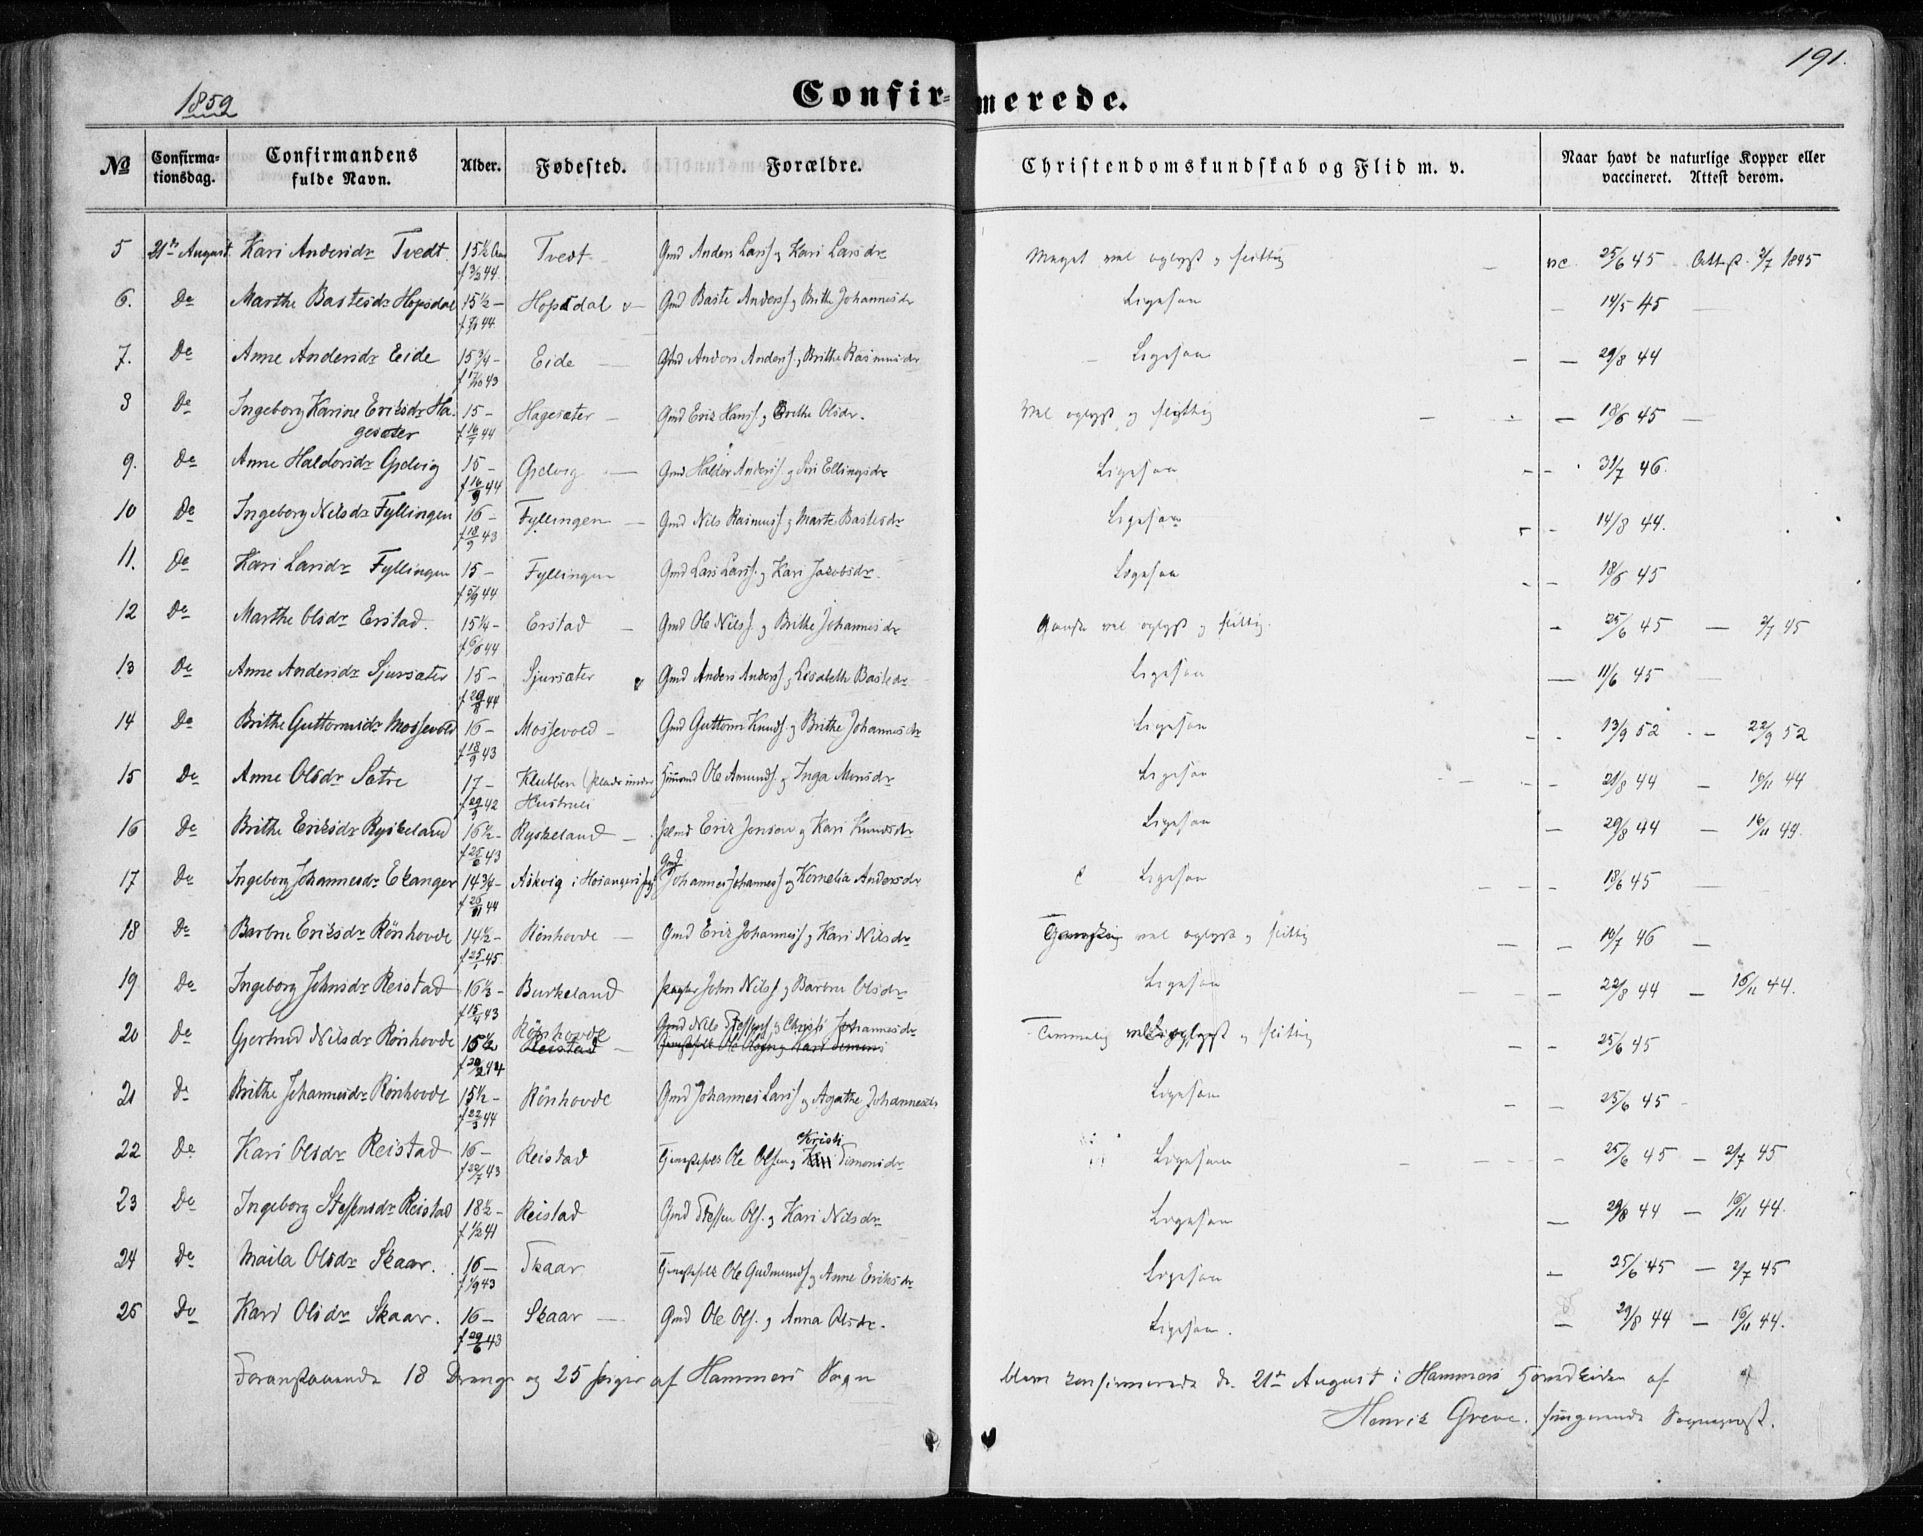 191.
1859
Confirmerede.
No Confirmationsdag. Confirmandens fulde Navn. Alder. Fødested. Forældre. Christendomskundskab og Flid m. v. Naar havt de naturlige Kopper eller vaccineret. Attest derom.
5 21de August Kari Andersdr Tvedt 15½ Aar Tvedt Gmd Anders Larss. og Kari Larsdr Meget vel oplyst og flittig vc. 25/6 45 Attest 2/7 1845
6. Do Marthe Bastesdr Hopsdal 15½ – Hopsdal Gmd Baste Anderss. og Brithe Johannesdr Ligesaa – 14/5 45
7. Do Anne Andersdr Eide 15¾ – f 17/10 43 Eide Gmd Anders Anderss. og Brithe Rasmusdr Ligesaa – 29/8 44
8 Do Ingeborg Karine Eriksdr Hagesæter 15 – f 16/7 44 Hagesæter Gmd Erik Hanss. og Brithe Olsdr. Vel oplyst og flittig – 18/6 45
9. Do Anne Haldorsdr Gjelvig 15 – f 16/9 44 Gjelvig Gmd Haldor Anderss. og Siri Ellingsdr Ligesaa – 31/7 46.
10 Do Ingeborg Nilsdr Fyllingen 16 – f 18/9 43 Fyllingen Gmd Nils Rasmuss. og Marte Bastesdr Ligesaa – 14/8 44.
11. Do Kari Larsdr Fyllingen 15 – Fyllingen Gmd Lars Larss. og Kari Jacobsdr. Ligesaa – 18/6 45
12 Do Marthe Olsdr Erstad. 15¼ – Erstad Gmd Ole Nilss. og Brithe Johannesdr Ganske vel oplyst og flittig. – 25/6 45 – 2/7 45
13 Do Anne Andersdr Sjursæter 15 – Sjursæter Gmd Anders Anderss. og Lisabeth Bastesdr Ligesaa – 11/6 45
14 Do Brithe Guttormsdr Mossevold 16 – f 18/9 43 Mossevold Gmd Guttorm Knuds. og Brithe Johannesdr Ligesaa – 13/9 52 – 22/9 52
15 Do Anne Olsdr Sætre 17 – Klubben Ole Amunds. og Inga Monsdr Ligesaa – 21/8 44 – 16/11 44
16 Do Brithe Eriksdr Ryskeland 16½ – Ryskeland Erik Jonson og Kari Knudsdr Ligesaa – 29/8 44 – 16/11 44.
17 Do Ingeborg Johannesdr Ekanger 14¾ – Askvig i Hosangers Gmd Johannes Johanness. og Kornelia Andersdr Ligesaa – 18/6 45
18 Do Barbru Eriksdr Rønhovde 14½ – f 25/1 45. Rønhovde Gmd Erik Johanness. og Kari Nilsdr Ganske vel oplyst og flittig – 10/7 46
19 Do Ingeborg Johnsdr Reistad 16⅓ – f 15/4 43 Burkeland John Nilss. og Barbru Olsdr Ligesaa – 22/8 44 – 16/11 44.
20 Do Gjertrud Nilsdr Rønhovde 15½ Rønhovde Gmd Nils Steffens. og Christi Johannesdr Temmelig vel oplyst og flittig – 25/6 45
21 Do Brithe Johannesdr Rønhovde 15½ – f 22/3 44 Rønhovde Gmd Johannes Larss. og Agathe Johannesdr Ligesaa – 25/6 45
22 Do Kari Olsdr Reistad 16 – Reistad Ole Olsen og Kristi Simonsdr Ligesaa 25/6 45 – 2/7 45
23 Do Ingeborg Steffensdr Reistad 18½ – Reistad Gmd Steffen Ols. og Kari Nilsdr Ligesaa – 29/8 44 – 16/11 44.
24 Do Maila Olsdr Skaar. 16 – f 1/9 43 Skaar Ole Gudmunds. og Anne Eriksdr Ligesaa – 25/6 45 – 2/7 45
25 Do Kari Olsdr Skaar. 16 – f 29/6 43 Skaar Gmd Ole Ols. og Anna Olsdr. Ligesaa. – 29/8 44 – 16/11 44.
Foranstaaende 18 Drenge og 25 Piger af Hammers Sogn bleve konfirmerede d. 21de August i Hammers Hovedkirke af
Henrik Greve. fungerende Sognepræst.